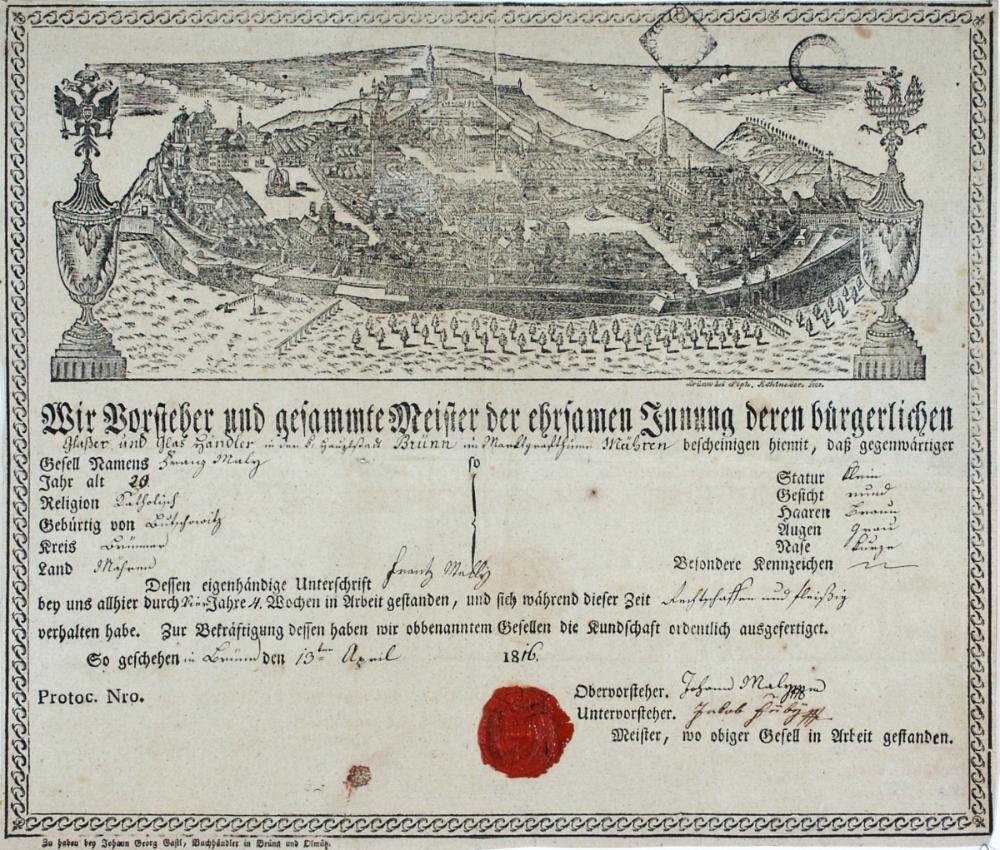 Wir Vorsteher und gesammte Meister der ehrsamen Innung deren bürgerlichen
Glaßer und Glas Händler in der k. Hauptstadt Brünn im Marktgrafthume Mähren bescheinigen hiemit, daß gegenwärtiger
Gesell Namens Franz Maly so
Jahr alt 20
Religion Katholisch
Gebürtig von Butschowitz
Kreis Brünner
Land Mähren
Statur klein
Gesicht rund
Haaren Braun
Augen grau
Nase kurze
Besondere Kennzeichen
Dessen eigenhändige Unterschrift Frantz Mally
bey uns allhier durch Jahre 4. Wochen in Arbeit gestanden, und sich während dieser Zeit Rechtschaffen und fleißig
verhalten habe. Zur Bekräftigung dessen haben wir obbenanntem Gesellen die Kundschaft ordentlich ausgefertiget.
So geschehen in Brünn den 13ten April 1816.
Protoc. Nro.
Obervorsteher. Johann Maly
Untervorsteher. Jakob
Meister, wo obiger Gesell in Arbeit gestanden.
Zu haben bey Johann Georg Gastl, Buchhändler in Brünn und Olmütz.